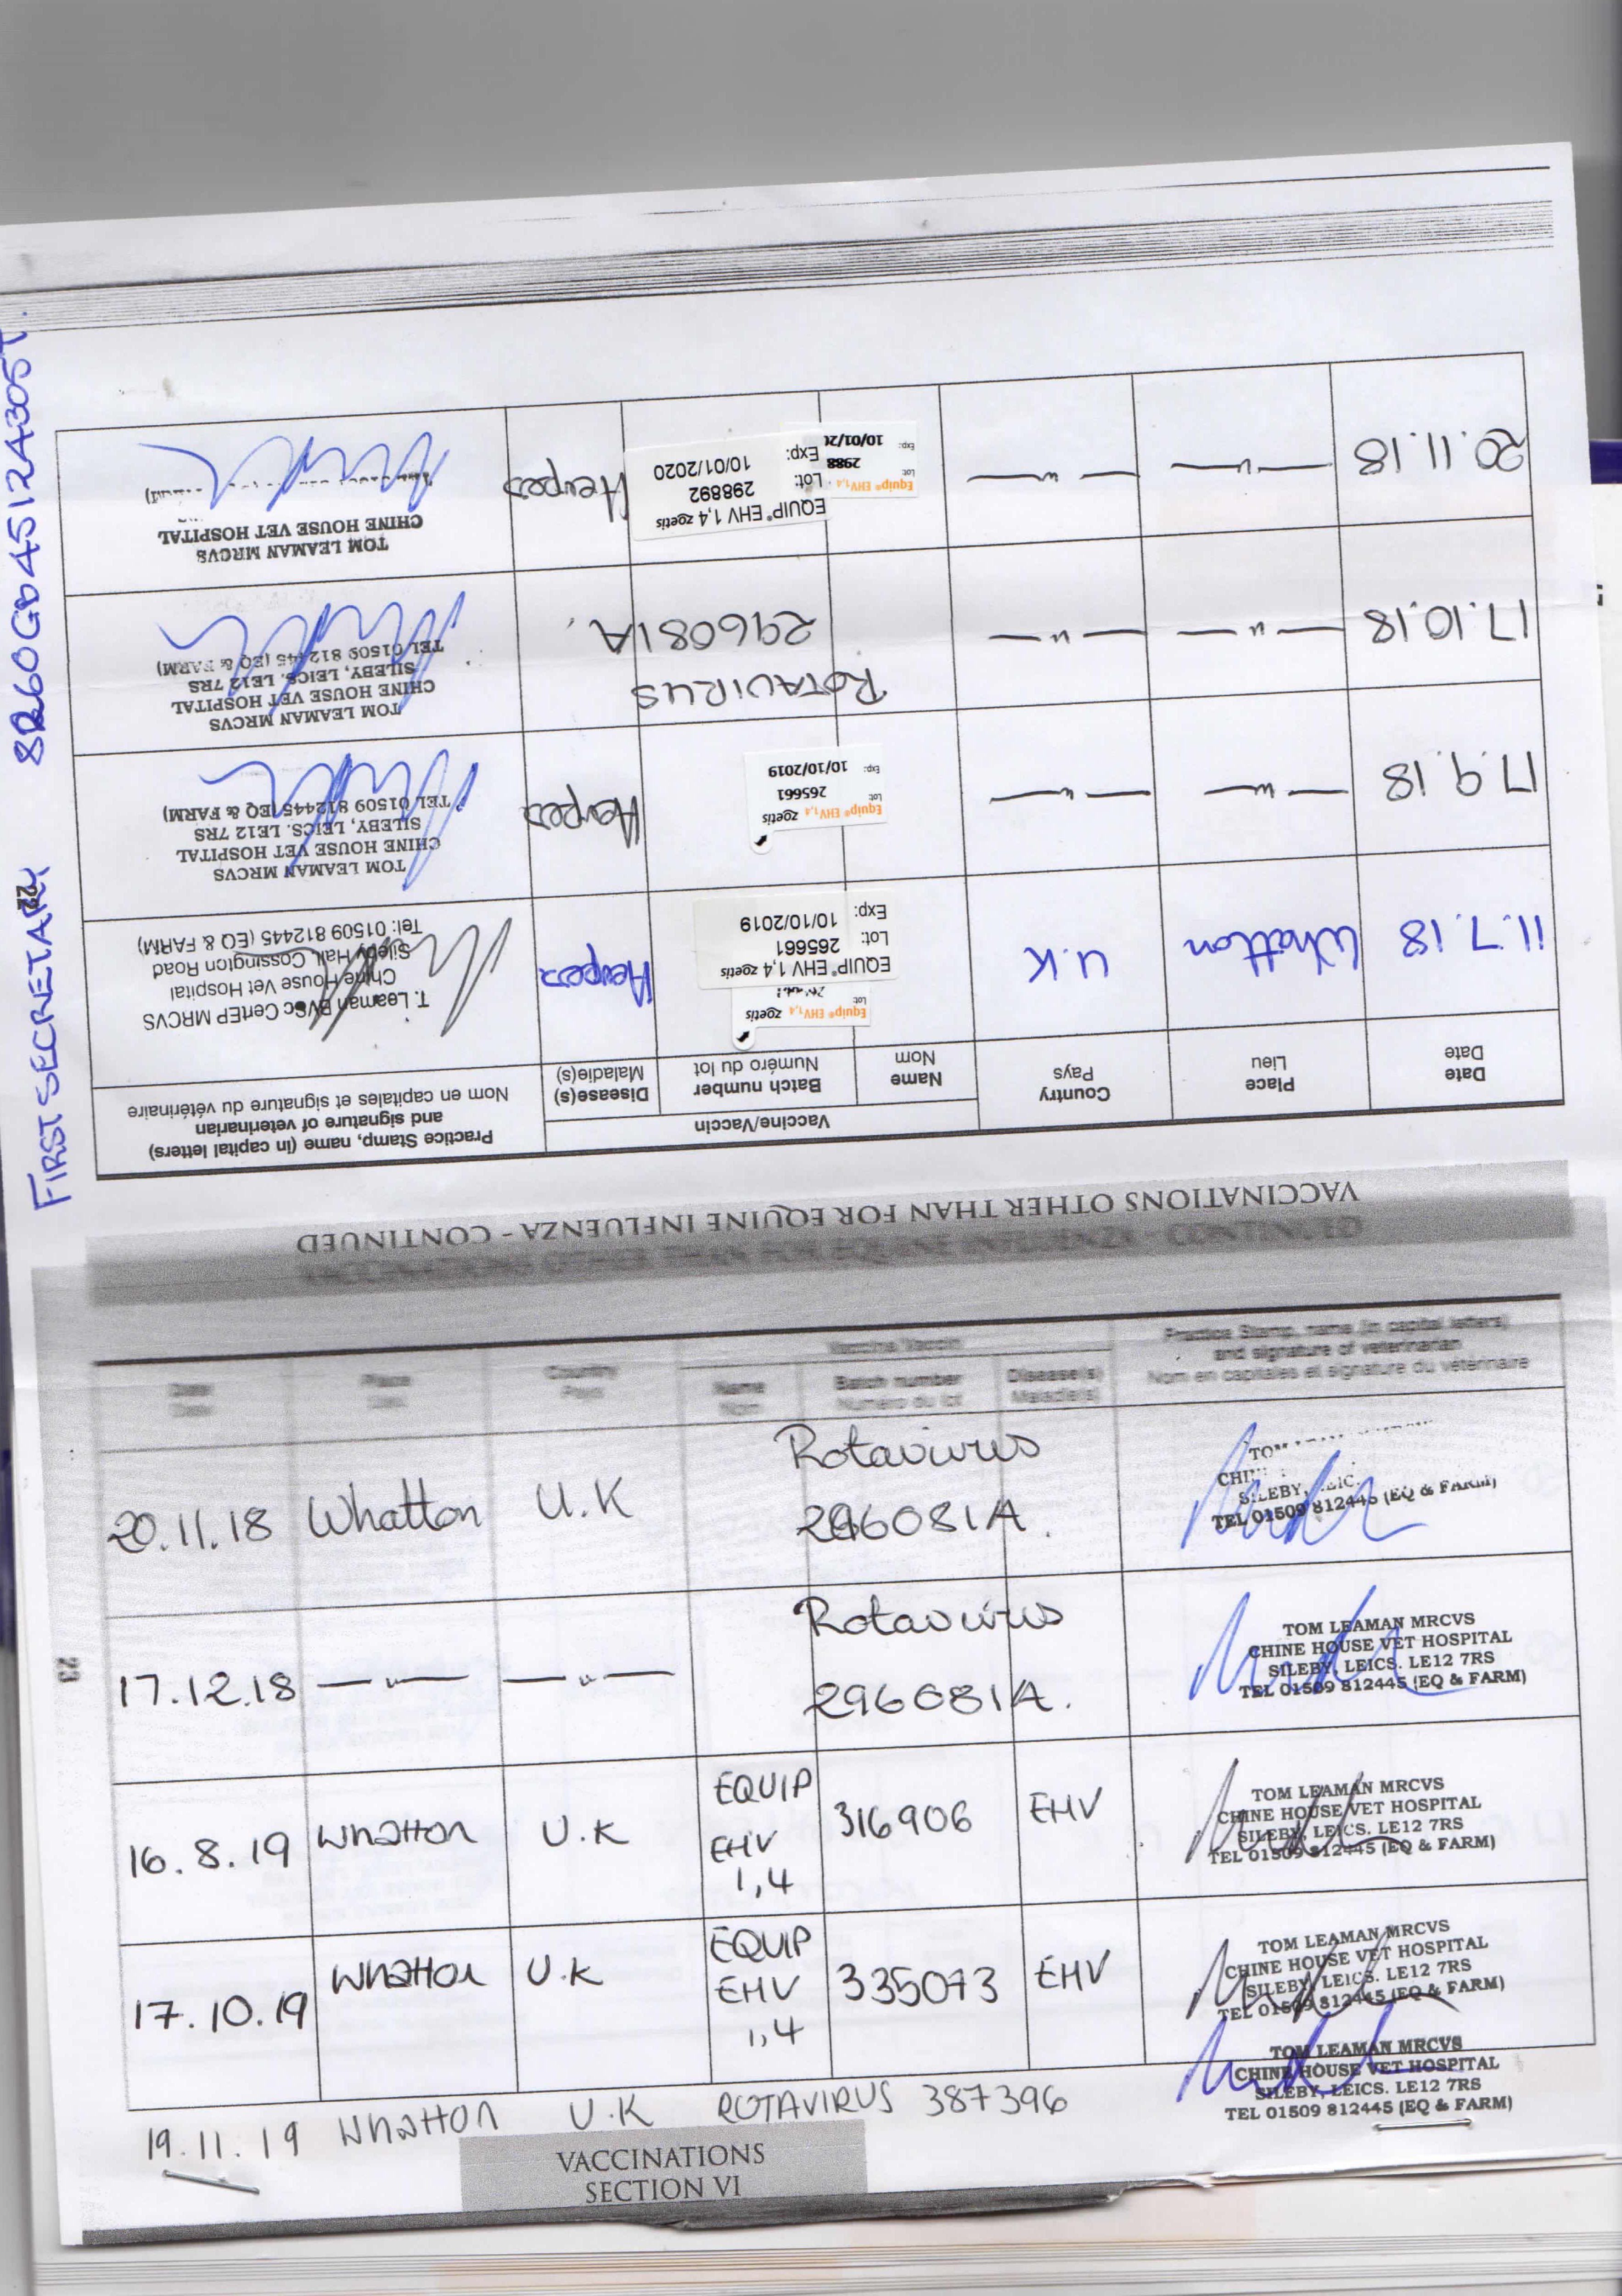 FIRST SECRETARY 8260GB4512A305T.
22
VACCINATIONS OTHER THAN FOR EQUINE INFLUENZA - CONTINUED
Date
Date
Place
Lieu
Country
Pays
Vaccine/Vaccin
Name
Nom
Batch number
Numéro du lot
Disease(s)
Maladie(s)
Practice Stamp, name (in capital letters)
and signature of veterinarian
Nom en capitales et signature du vétérinaire
11.7.18 Whatton U.K Herpes
Equip® EHV 1,4 zoetis
Lot
EQUIP® EHV 1,4 zoetis
Lot: 265661
Exp: 10/10/2019
T. Leaman BVSc CertEP MRCVS
Chine House Vet Hospital
Sileby Hall, Cossington Road
Tel: 01509 812445 (EQ & FARM)
17.9.18 —"— —"— Herpes
Equip® EHV 1,4 zoetis
Lot 265661
Exp: 10/10/2019
TOM LEAMAN MRCVS
CHINE HOUSE VET HOSPITAL
SILEBY, LEICS. LE12 7RS
TEL 01509 812445 (EQ & FARM)
17.10.18 —"— —"— ROTAVIRUS
296081A.
TOM LEAMAN MRCVS
CHINE HOUSE VET HOSPITAL
SILEBY, LEICS. LE12 7RS
TEL 01509 812445 (EQ & FARM)
20.11.18 —"— —"— Herpes
Equip® EHV 1,4
Lot 2988
Exp: 10/01/20
EQUIP® EHV 1,4 zoetis
Lot: 298892
Exp: 10/01/2020
TOM LEAMAN MRCVS
CHINE HOUSE VET HOSPITAL
VACCINATIONS OTHER THAN FOR EQUINE INFLUENZA - CONTINUED
Date
Date
Place
Lieu
Country
Pays
Vaccine/Vaccin
Name
Nom
Batch number
Numéro du lot
Disease(s)
Maladie(s)
Practice Stamp, name (in capital letters)
and signature of veterinarian
Nom en capitales et signature du vétérinaire
20.11.18 Whatton U.K Rotavirus
296081A.
SILEBY,
TEL 01509 812445 (EQ & FARM)
23
17.12.18 —"— —"— Rotavirus
296081A.
TOM LEAMAN MRCVS
CHINE HOUSE VET HOSPITAL
SILEBY, LEICS. LE12 7RS
TEL 01509 812445 (EQ & FARM)
16.8.19 Whatton U.K EQUIP
EHV
1,4
316906 EHV
TOM LEAMAN MRCVS
CHINE HOUSE VET HOSPITAL
SILEBY, LEICS. LE12 7RS
TEL 01509 812445 (EQ & FARM)
17.10.19 Whatton U.K EQUIP
EHV
1,4
335073 EHV
TOM LEAMAN MRCVS
CHINE HOUSE VET HOSPITAL
SILEBY, LEICS. LE12 7RS
TEL 01509 812445 (EQ & FARM)
19.11.19 Whatton U.K ROTAVIRUS 387396
TOM LEAMAN MRCVS
CHINE HOUSE VET HOSPITAL
SILEBY, LEICS. LE12 7RS
TEL 01509 812445 (EQ & FARM)
VACCINATIONS
SECTION VI